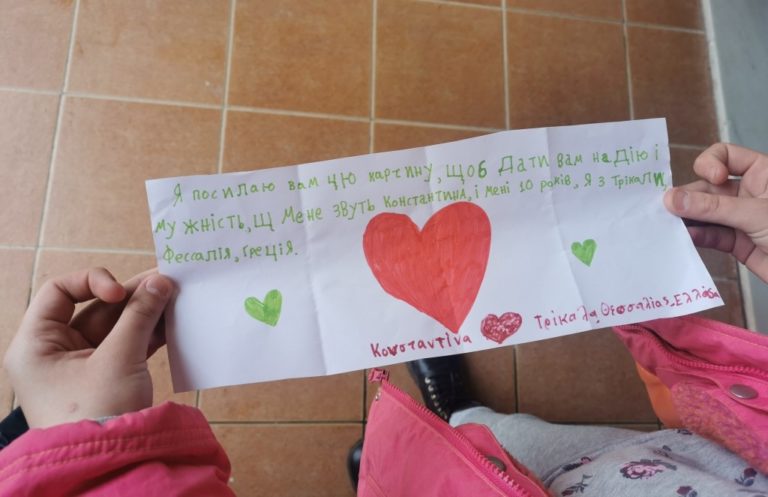 Я посилаю вам цю картину, щоб Дати вам наДію і
му жність, Щ Мене звуть Константина, і мені 10 років, Я з Трікали,
Фессалія, Греція.
Κωνσταντίνα Τρίκαλα, Θεσσαλίας, Ελλάδα